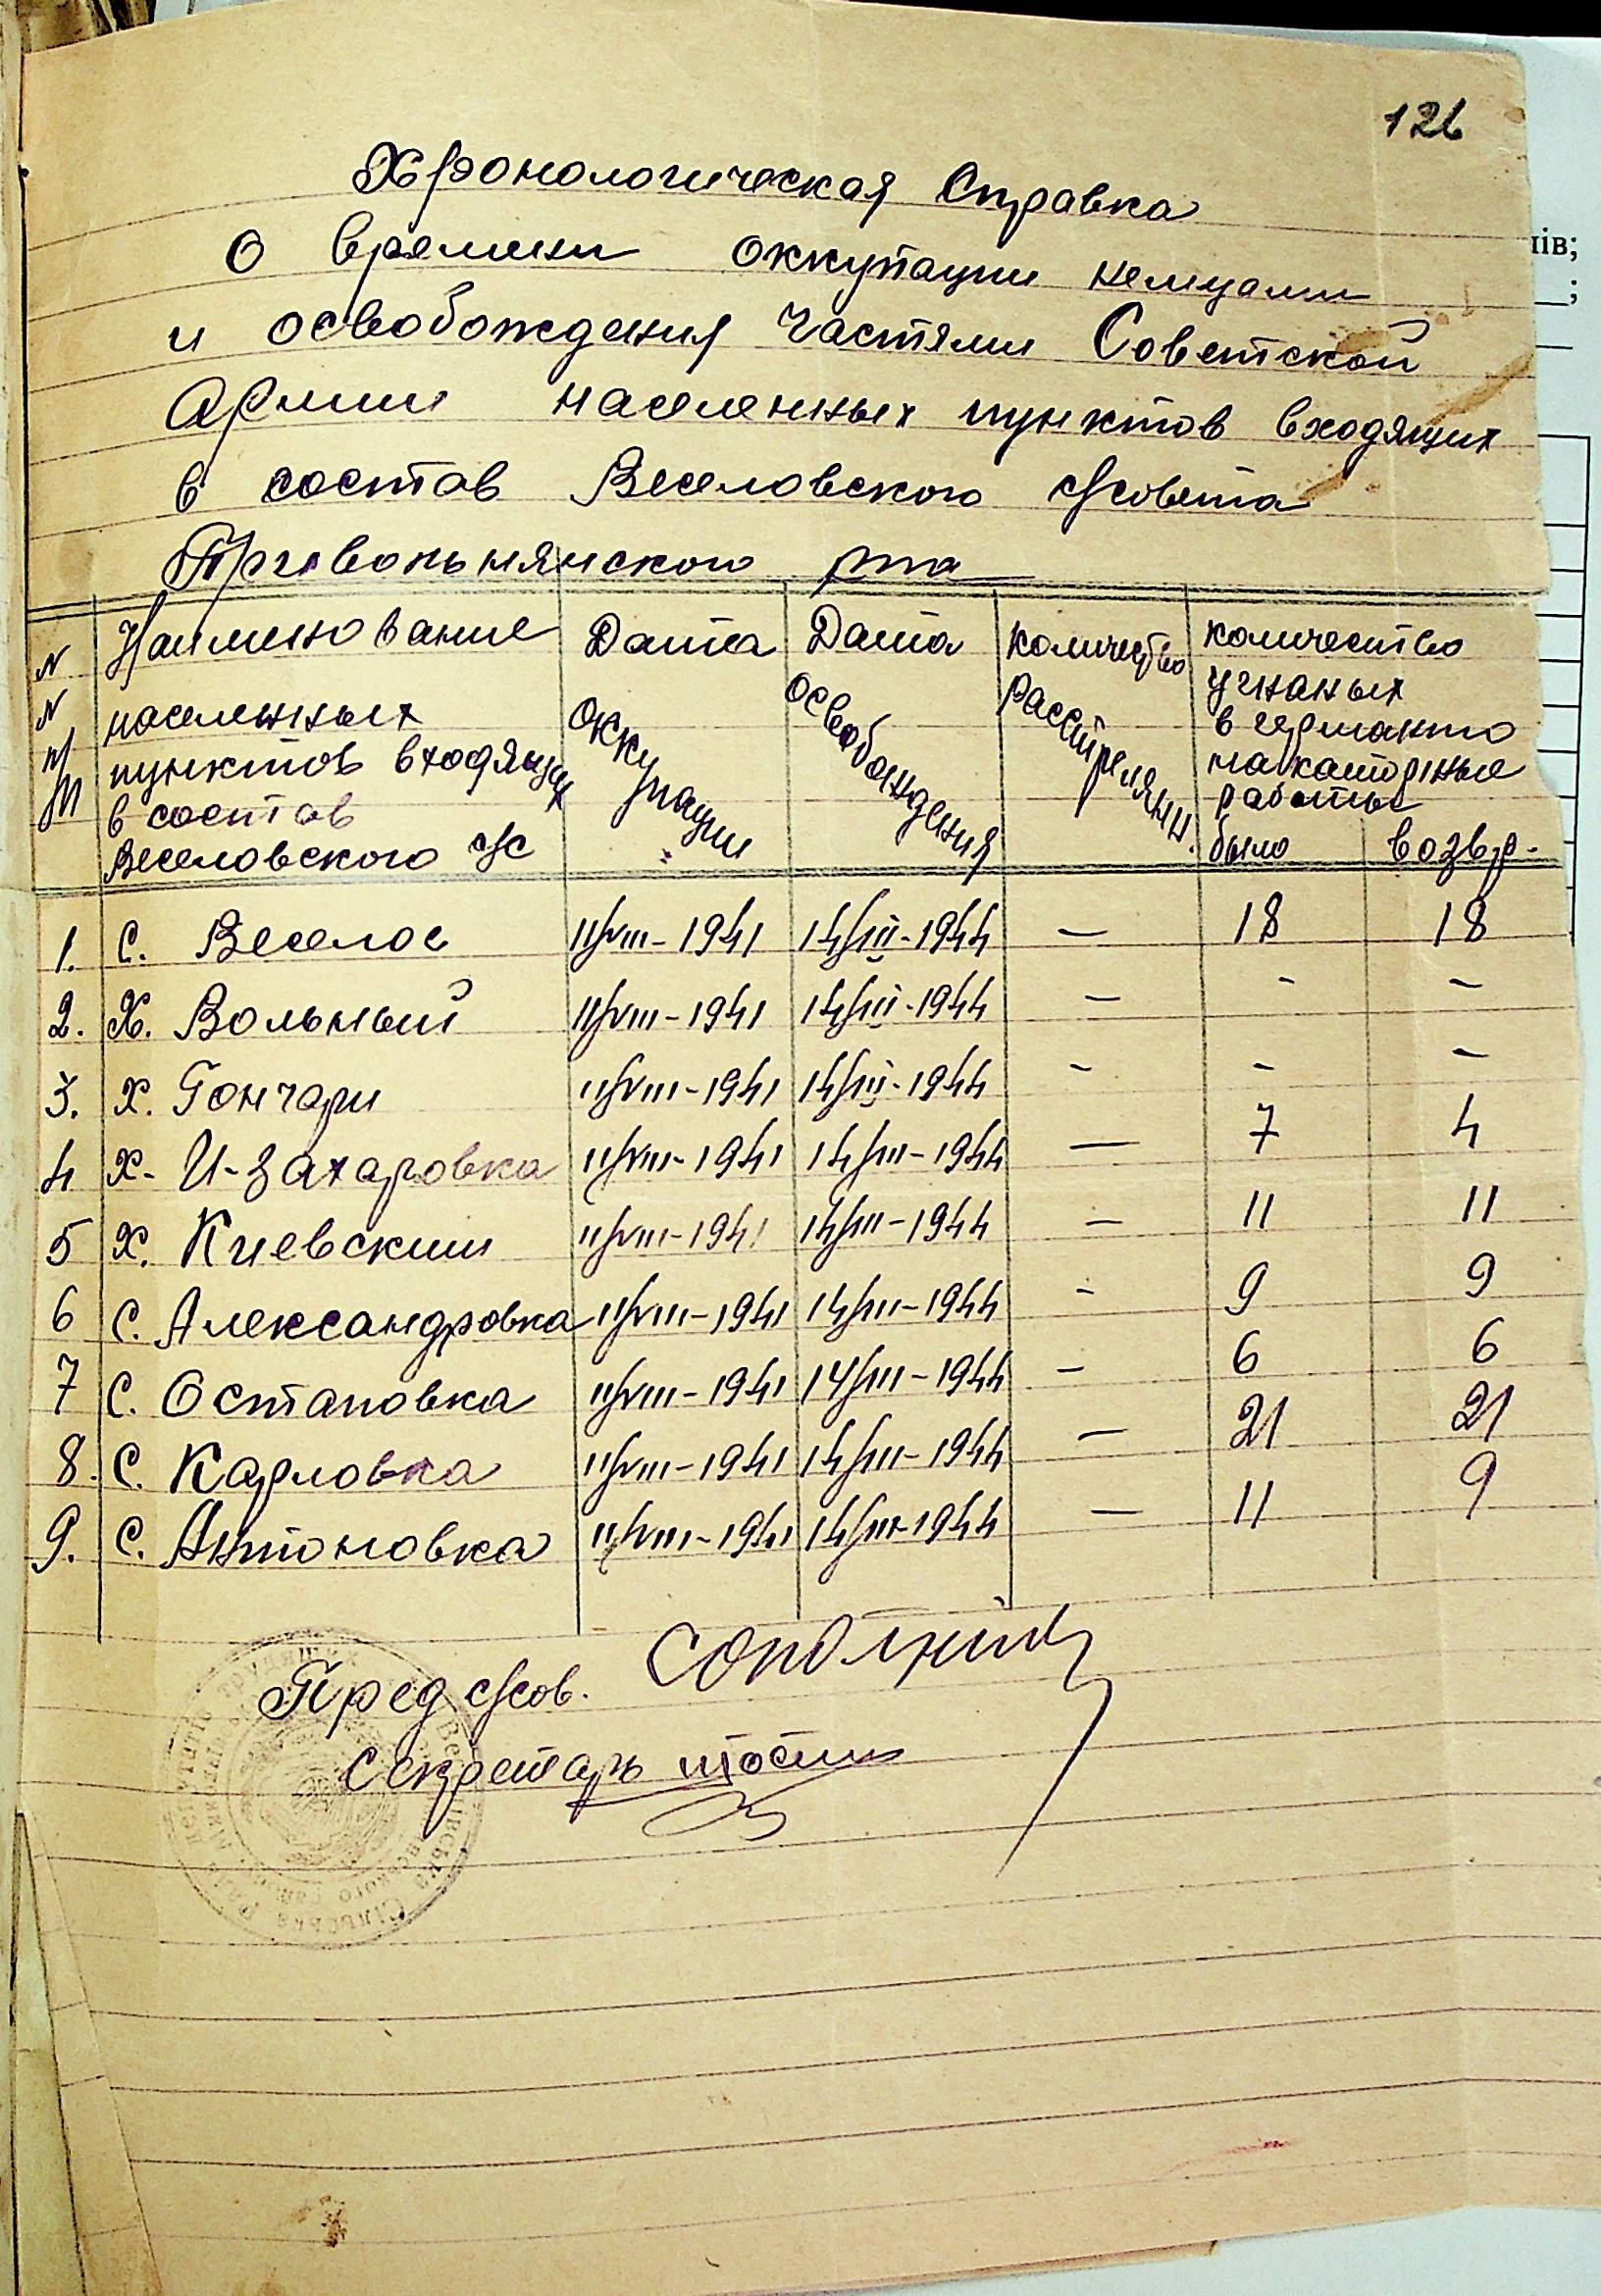 126
Хронологическая Справка
о времени оккупации немцами
и освобождения частями Советской
Армии населенных пунктов входящих
в состав Веселовского с/совета
Привольнянского р-на
N N п/п Наименование населенных пунктов входящих в состав Веселовского с/с Дата оккупации Дата освобождения количество расстрелянн. количество угнаных в германию на каторжные работы было возвр.
1. С. Веселое 11/VIII-1941 14/III-1944 — 18 18
2. Х. Вольный 11/VIII-1941 14/III-1944 — - -
3. Х. Гончари 11/VIII-1941 14/III-1944 - - -
4 Х- И-Захаровка 11/VIII-1941 14/III-1944 — 7 4
5 Х. Киевский 11/VIII-1941 14/III-1944 — 11 11
6 С. Александровка 11/VIII-1941 14/III-1944 - 9 9
7 С. Остаповка 11/VIII-1941 14/III-1944 — 6 6
8. С. Карловка 11/VIII-1941 14/III-1944 — 21 21
9. С. Антоновка 11/VIII-1941 14/III-1944 — 11 9
Пред с/сов.
Секретарь
ів;
;